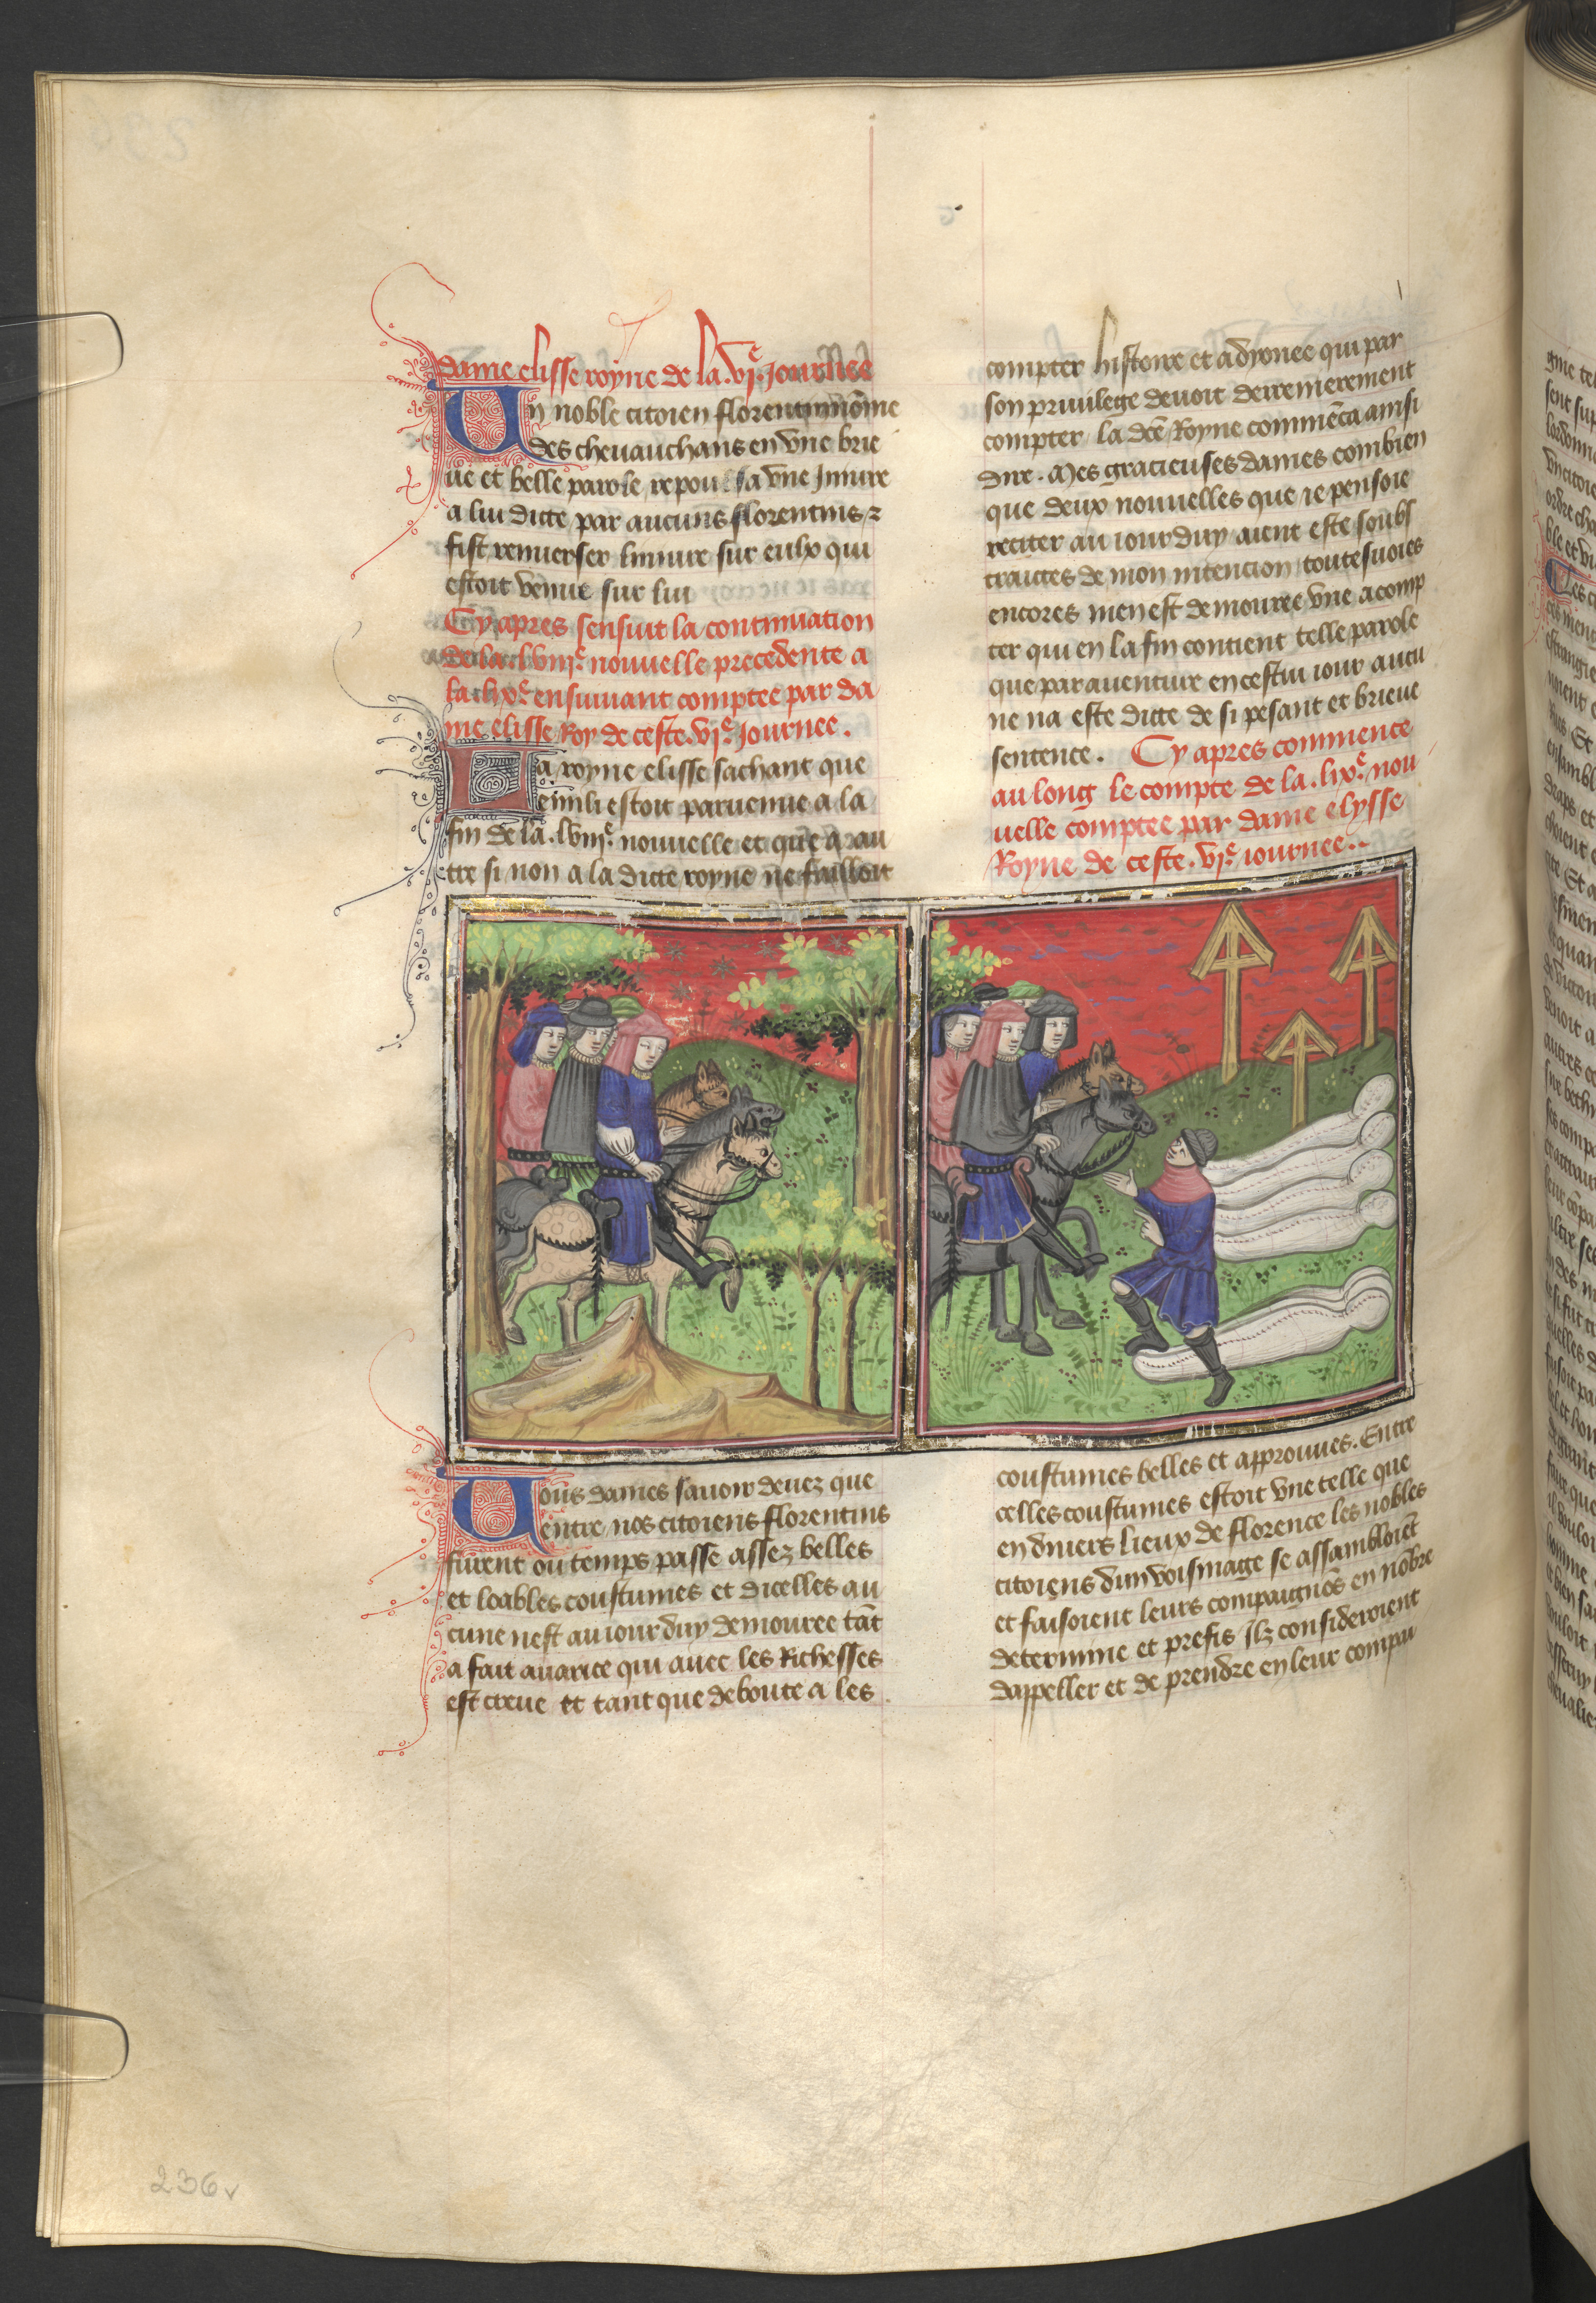 dame elisse royne de la .vi.e Journee
Un noble citoien florentin nōme
des chevauchans en vne brie
ue et belle parole repoulsa vne Iniure
a lui dicte par aucuns florentins ⁊
fist renuerser liniure sur eulx qui
estoit venue sur lui
Cy apres sensuit la continuation
de la .lviii.e nouuelle precedente a
la lix.e ensuiuant comptee par da
me elisse Roy de ceste .vi.e Journee .
La royne elisse sachant que
emili estoit paruenue a la
fin de la .lviii.e nouuelle et que a au
tre si non a la dicte royne ne failloit
compter histoire et a dyonee qui par
son priuilege deuoit derrenierement
compter la dcē Royne commēca ainsi
dire . Mes gracieuses dames combien
que deux nouuelles que ie pensoie
reciter au iourduy aient este soubs
traictes de mon intencion toutesuoies
encores men est demouree vne a comp
ter qui en la fin contient telle parole
que par auenture en cestui iour aucu
ne na este dicte de si pesant et brieue
sentence . Cy apres commence
au long le compte de la .lix.e nou
uelle comptee par dame elysse
Royne de ceste .vi.e iournee ..
Uous dames sauoir deuez que
entre nos citoiens florentins
furent ou temps passe assez belles
et loables coustumes et dicelles au
cune nest auiourduy demouree tāt
a fait auarice qui auec les Richesses
est creue et tant que deboute a les
coustumes belles et approuuees . Entre
celles coustumes estoit vne telle que
en diuers lieux de florence les nobles
citoiens dun voisinage se assambloiēt
et faisoient leurs compaignōs en nōbre
determine et prefis Ilz consideroient
dappeller et de prendre en leur compai
236v